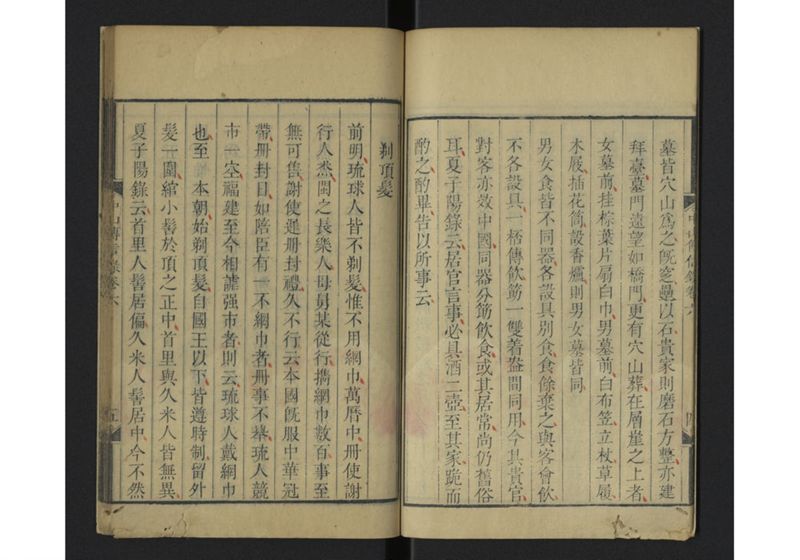 墓皆穴山爲之旣窆壘以石貴家則磨石方整亦建
拜臺墓門遠望如橋門更有穴山葬在層崖之上者
女墓前挂棕葉片扇白巾男墓前白布笠立杖草屨
木屐插花筒設香爐則男女墓皆同
男女食皆不同器各設具別食食餘棄之與客會飲
不各設具一桮傳飲筯一雙著盎間同用今其貴官
對客亦效中國同器分筯飲食或其居常尚仍舊俗
耳夏子陽錄云居官言事必具酒二壺至其家跪而
酌之酌畢告以所事云
中山傳信錄卷六
剃頂髮
前明琉球人皆不剃髮惟不用網巾萬曆中冊使謝
行人杰閩之長樂人母舅某從行攜網巾數百事至
無可售謝使遲冊封禮久不行云本國旣服中華冠
帶冊封日如陪臣有一不網巾者冊事不舉琉人競
市一空福建至今相謔强市者則云琉球人戴網巾
也至本朝始剃頂髮自國王以下皆遵時制留外
髮一圍綰小髻於頂之正中首里與久米人皆無異
夏子陽錄云首里人髻居偏久米人髻居中今不然
中山傳信錄卷六
五